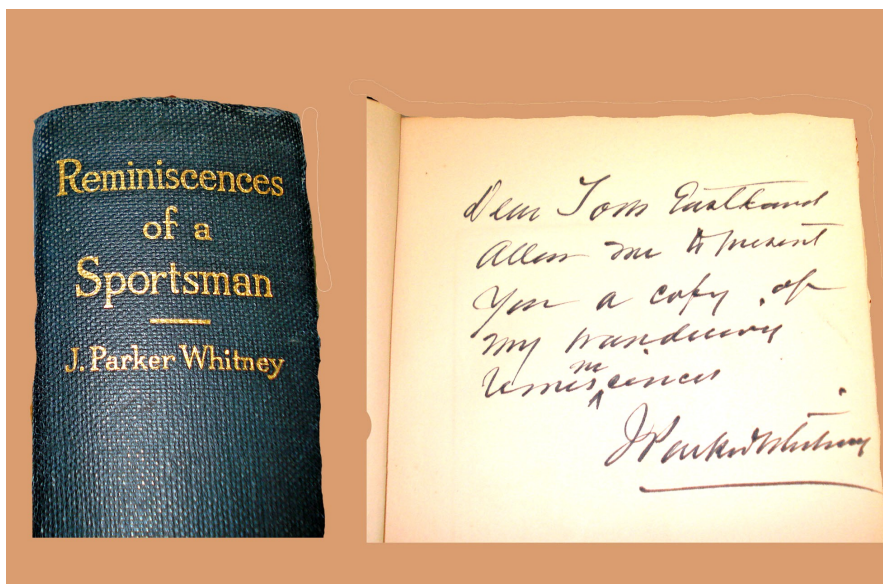 Reminiscences
of a
Sportsman
J. Parker Whitney
Dear Tom Eastland
Allow me to present
You a copy of
my wandering
reminiscences
J Parker Whitney